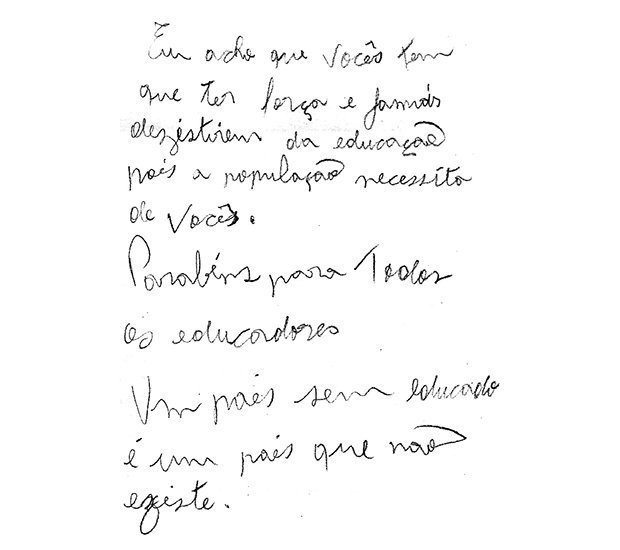 Eu acho que vocês tem
que ter força e jamais
dezistirem da educação
pois a população necessita
de vocês.
Parabéns para Todos
os educadores
Um país sem educado
é um país que não
existe.